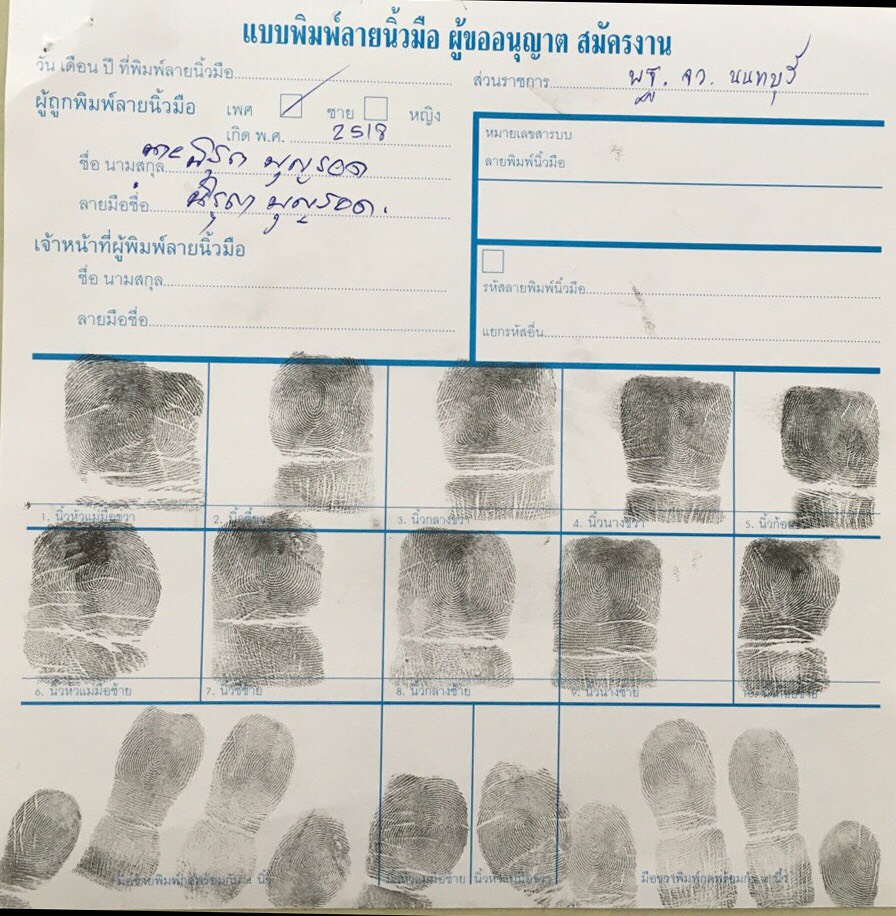 แบบพิมพ์ลายนิ้วมือ ผู้ขออนุญาต สมัครงาน
วัน เดือน ปี ที่พิมพ์ลายนิ้วมือ
ส่วนราชการ พฐ. จว. นนทบุรี
ผู้ถูกพิมพ์ลายนิ้วมือ เพศ ชาย หญิง
เกิด พ.ศ. 2518
ชื่อ นามสกุล บุญรอด
ลายมือชื่อ บุญรอด.
เจ้าหน้าที่ผู้พิมพ์ลายนิ้วมือ
ชื่อ นามสกุล
ลายมือชื่อ
หมายเลขสารบบ
ลายพิมพ์นิ้วมือ
รหัสลายพิมพ์นิ้วมือ
แยกรหัสอื่น
1. นิ้วหัวแม่มือขวา 2. นิ้วชี้ขวา 3. นิ้วกลางขวา 4. นิ้วนางขวา 5. นิ้วก้อย
6. นิ้วหัวแม่มือซ้าย 7. นิ้วชี้ซ้าย 8. นิ้วกลางซ้าย 9. นิ้วนางซ้าย
มือซ้ายพิมพ์กดพร้อมกัน ๔ นิ้ว นิ้วหัวแม่มือซ้าย นิ้วหัวแม่มือขวา มือขวาพิมพ์กดพร้อมกัน ๔ นิ้ว